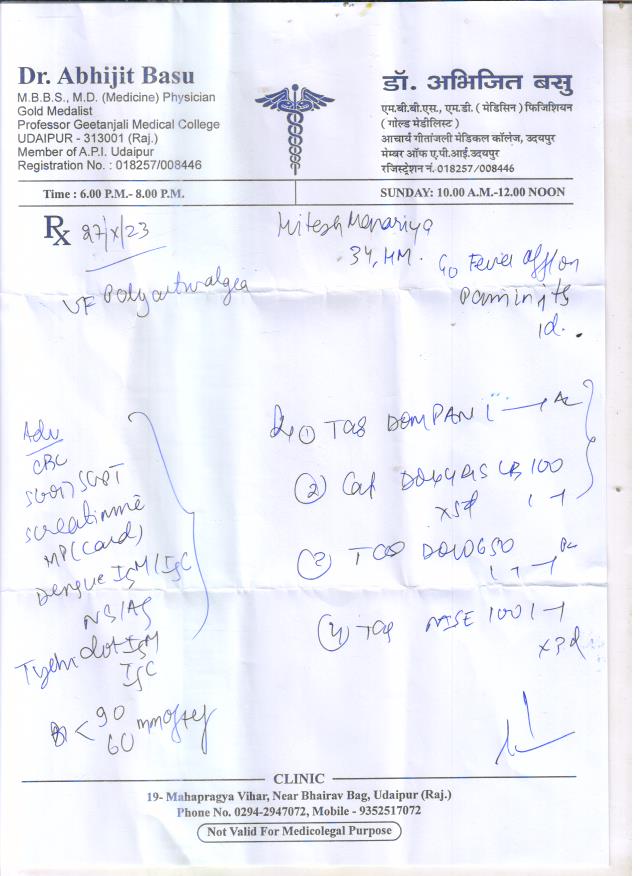 Dr. Abhijit Basu
M.B.B.S., M.D. (Medicine) Physician
Gold Medalist
Professor Geetanjali Medical College
UDAIPUR - 313001 (Raj.)
Member of A.P.I. Udaipur
Registration No. : 018257/008446
डॉ. अभिजित बसु
एम.बी.बी.एस., एम.डी. ( मेडिसिन ) फिजिशियन
( गोल्ड मेडीलिस्ट )
आचार्य गीतांजली मेडिकल कॉलेज, उदयपुर
मेम्बर ऑफ ए.पी.आई.उदयपुर
रजिस्ट्रेशन नं. 018257/008446
Time : 6.00 P.M.- 8.00 P.M.
SUNDAY: 10.00 A.M.-12.00 NOON
Rx 27/X/23
Mitesh Menariya
34, HM.
Fever off/on
1d.
Adv
CBC
SGOT/SGPT
Screatinine
MP (Card)
Dengue IgM/IgG
NS1Ag
Typhi dot IgM
IgG
90
60 mmofHg
① Tab DOMPAN
② Cap LB 100
x5d 1-1
③ DOLO 650
④ Tab NISE 100 1-1
x3d
CLINIC
19- Mahapragya Vihar, Near Bhairav Bag, Udaipur (Raj.)
Phone No. 0294-2947072, Mobile - 9352517072
Not Valid For Medicolegal Purpose